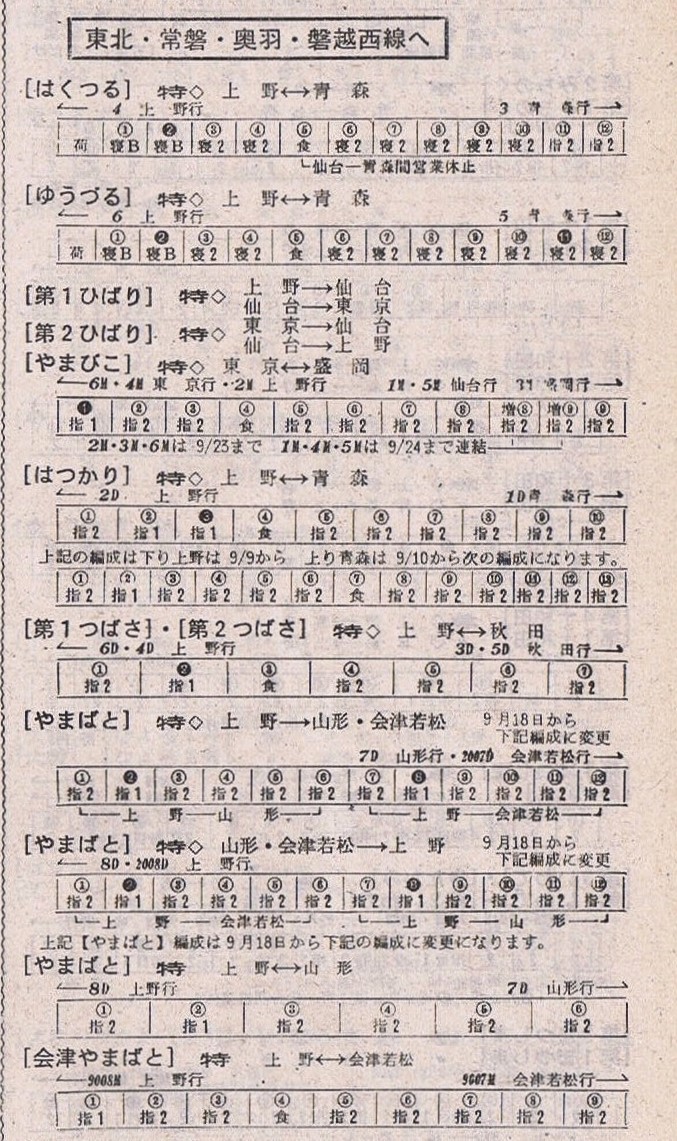 東北・常磐・奥羽・磐越西線へ
[はくつる] 特◇ 上 野↔青 森
← 4 上 野行 3 青 森行 →
① ❷ ③ ④ ⑤ ⑥ ⑦ ⑧ ⑨ ⑩ ⑪ ⑫
荷 寝B 寝B 寝2 寝2 食 寝2 寝2 寝2 寝2 寝2 指2 指2
仙台―青森間営業休止
[ゆうづる] 特◇ 上 野↔青 森
← 6 上 野行 5 青 森行 →
① ❷ ③ ④ ⑤ ⑥ ⑦ ⑧ ⑨ ⑩ ⓫ ⑫
荷 寝B 寝B 寝2 寝2 食 寝2 寝2 寝2 寝2 寝2 寝2 寝2
[第1ひばり] 特◇ 上 野→仙 台
仙 台→東 京
[第2ひばり] 特◇ 東 京→仙 台
仙 台→上 野
[やまびこ] 特◇ 東 京↔盛 岡
← 6M・4M 東 京行・2M 上 野行 1M・5M 仙台行 3M 盛岡行 →
❶ ② ③ ④ ⑤ ⑥ ⑦ ⑧ 増⑧ 増⑨ ⑨
指1 指2 指2 食 指2 指2 指2 指2 指2 指2 指2
2M・3M・6Mは 9/23まで 1M・4M・5Mは 9/24まで連結
[はつかり] 特◇ 上 野↔青 森
← 2D 上 野行 1D青 森行 →
① ② ❸ ④ ⑤ ⑥ ⑦ ⑧ ⑨ ⑩
指2 指1 指1 食 指2 指2 指2 指2 指2 指2
上記の編成は下り上野は 9/9から 上り青森は 9/10から次の編成になります。
① ② ③ ④ ⑤ ⑥ ⑦ ⑧ ⑨ ⑩ ⑪ ⑫ ⑬
指2 指1 指2 指2 指2 指2 食 指2 指2 指2 指2 指2 指2
[第1つばさ]・[第2つばさ] 特◇ 上 野↔秋 田
← 6D・4D 上 野行 3D・5D 秋 田行 →
① ❷ ③ ④ ⑤ ⑥ ⑦
指2 指1 食 指2 指2 指2 指2
[やまばと] 特◇ 上 野→山形・会津若松 9月18日から
下記編成に変更
7D 山形行・2007D 会津若松行 →
① ❷ ③ ④ ⑤ ⑥ ⑦ ❽ ⑨ ⑩ ⑪ ⑫
指2 指1 指2 指2 指2 指2 指2 指1 指2 指2 指2 指2
上 野―山 形 上 野―会津若松
[やまばと] 特◇ 山形・会津若松→上 野 9月18日から
下記編成に変更
← 8D・2008D 上 野行
① ❷ ③ ④ ⑤ ⑥ ⑦ ❽ ⑨ ⑩ ⑪ ⑫
指2 指1 指2 指2 指2 指2 指2 指1 指2 指2 指2 指2
上 野―会津若松 上 野―山 形
上記【やまばと】編成は9月18日から下記の編成に変更になります。
[やまばと] 特 上 野↔山 形
← 8D 上野行 7D 山形行 →
① ② ③ ④ ⑤ ⑥
指2 指1 指2 指2 指2 指2
[会津やまばと] 特 上 野↔会津若松
← 9008M 上 野行 9007M 会津若松行 →
① ② ③ ④ ⑤ ⑥ ⑦ ⑧ ⑨
指1 指2 指2 食 指2 指2 指2 指2 指2